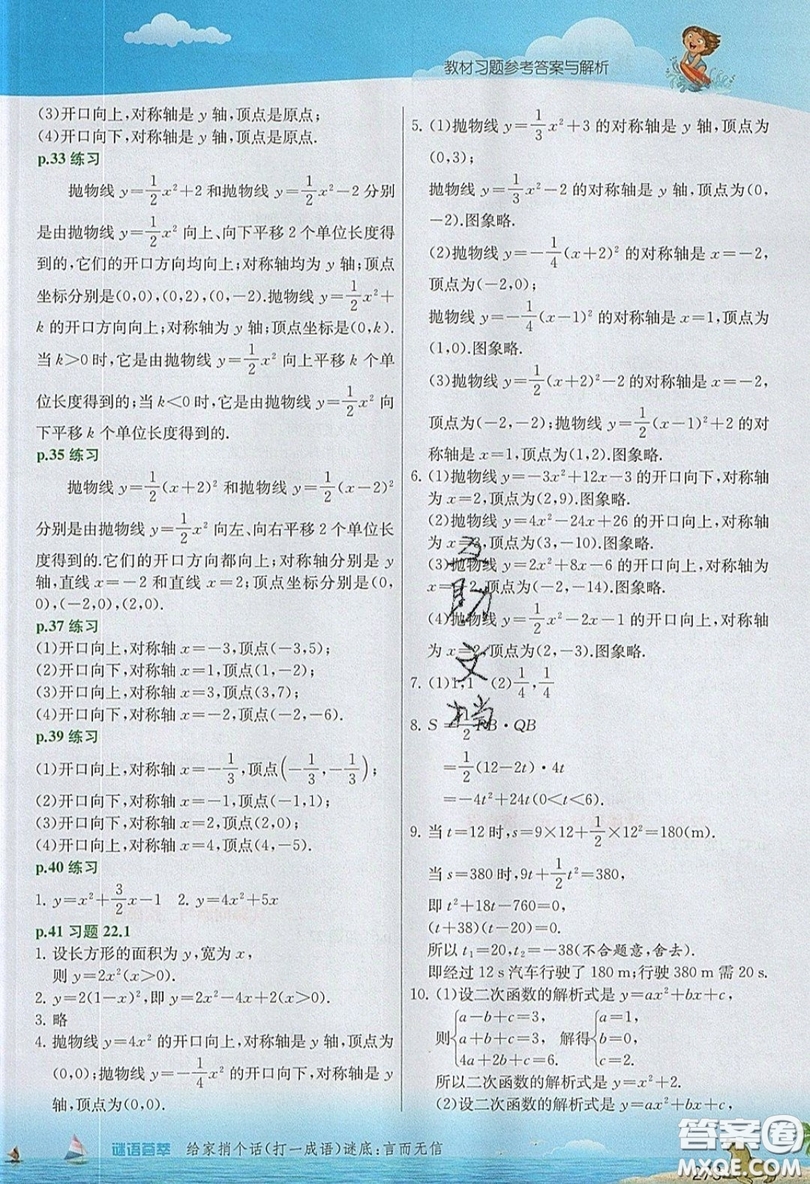 教材习题参考答案与解析
(3)开口向上,对称轴是 y 轴,顶点是原点;
(4)开口向下,对称轴是 y 轴,顶点是原点.
p.33 练习
抛物线 y=1/2x²+2 和抛物线 y=1/2x²-2 分别
是由抛物线 y=1/2x² 向上、向下平移 2 个单位长度得
到的,它们的开口方向均向上;对称轴均为 y 轴;顶点
坐标分别是(0,0),(0,2),(0,-2).抛物线 y=1/2x²+
k 的开口方向向上;对称轴为 y 轴;顶点坐标是(0,k).
当 k>0 时,它是由抛物线 y=1/2x² 向上平移 k 个单
位长度得到的;当 k<0 时,它是由抛物线 y=1/2x² 向
下平移 k 个单位长度得到的.
p.35 练习
抛物线 y=1/2(x+2)² 和抛物线 y=1/2(x-2)²
分别是由抛物线 y=1/2x² 向左、向右平移 2 个单位长
度得到的.它们的开口方向都向上;对称轴分别是 y
轴,直线 x=-2 和直线 x=2;顶点坐标分别是(0,
0),(-2,0),(2,0).
p.37 练习
(1)开口向上,对称轴 x=-3,顶点(-3,5);
(2)开口向下,对称轴 x=1,顶点(1,-2);
(3)开口向上,对称轴 x=3,顶点(3,7);
(4)开口向下,对称轴 x=-2,顶点(-2,-6).
p.39 练习
(1)开口向上,对称轴 x=-1/3,顶点(-1/3,-1/3);
(2)开口向下,对称轴 x=-1,顶点(-1,1);
(3)开口向下,对称轴 x=2,顶点(2,0);
(4)开口向上,对称轴 x=4,顶点(4,-5).
p.40 练习
1. y=x²+3/2x-1 2. y=4x²+5x
p.41 习题 22.1
1. 设长方形的面积为 y,宽为 x,
则 y=2x²(x>0).
2. y=2(1-x)²,即 y=2x²-4x+2(x>0).
3. 略
4. 抛物线 y=4x² 的开口向上,对称轴是 y 轴,顶点为
(0,0);抛物线 y=-1/4x² 的开口向下,对称轴是 y
轴,顶点为(0,0).
5. (1)抛物线 y=1/3x²+3 的对称轴是 y 轴,顶点为
(0,3);
抛物线 y=1/3x²-2 的对称轴是 y 轴,顶点为(0,
-2).图象略.
(2)抛物线 y=-1/4(x+2)² 的对称轴是 x=-2,
顶点为(-2,0);
抛物线 y=-1/4(x-1)² 的对称轴是 x=1,顶点为
(1,0).图象略.
(3)抛物线 y=1/2(x+2)²-2 的对称轴是 x=-2,
顶点为(-2,-2);抛物线 y=1/2(x-1)²+2 的对
称轴是 x=1,顶点为(1,2).图象略.
6. (1)抛物线 y=-3x²+12x-3 的开口向下,对称轴
为 x=2,顶点为(2,9).图象略.
(2)抛物线 y=4x²-24x+26 的开口向上,对称轴
为 x=,顶点为(3,-10).图象略.
(3)抛物线 y=2x²+8x-6 的开口向上,对称轴为
x=,顶点为(-2,-14).图象略.
(4)抛物线 y=1/2x²-2x-1 的开口向上,对称轴
为 x=,顶点为(2,-3).图象略.
7. (1)1,1 (2)1/4,1/4
8. S=1/2PB·QB
=1/2(12-2t)·4t
=-4t²+24t(0<t<6).
9. 当 t=12 时,s=9×12+1/2×12²=180(m).
当 s=380 时,9t+1/2t²=380,
即 t²+18t-760=0,
(t+38)(t-20)=0.
所以 t₁=20,t₂=-38(不合题意,舍去).
即经过 12 s 汽车行驶了 180 m;行驶 380 m 需 20 s.
10. (1)设二次函数的解析式是 y=ax²+bx+c,
则{a-b+c=3, a+b+c=3, 4a+2b+c=6. 解得{a=1, b=0, c=2.
所以二次函数的解析式是 y=x²+2.
(2)设二次函数的解析式是 y=ax²+bx+c,
谜语荟萃 给家捎个话(打一成语)谜底:言而无信
答案圈
MXQE.COM